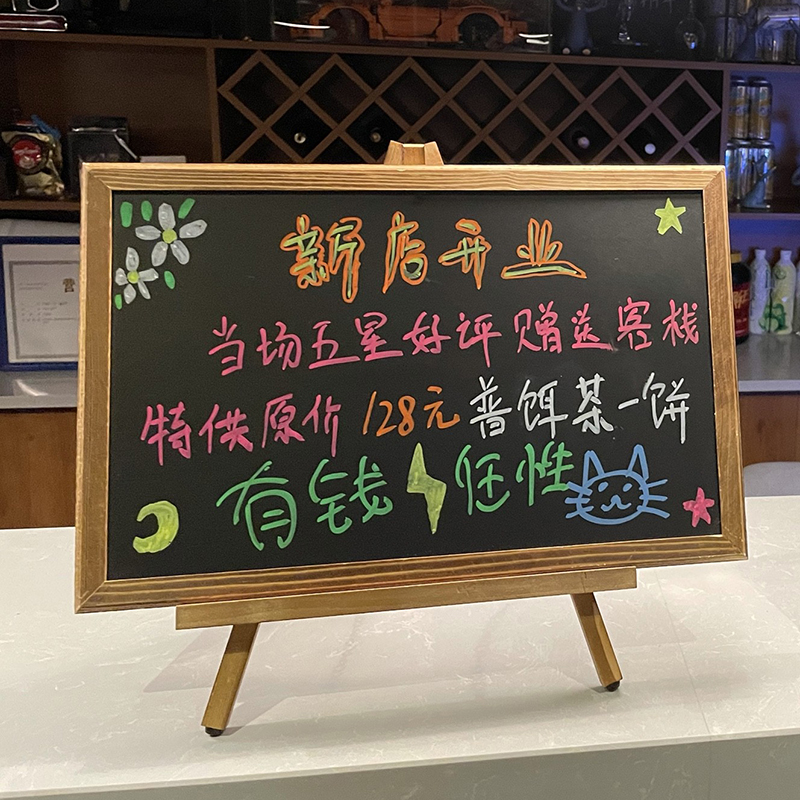 新店开业
当场五星好评赠送客栈
特供原价128元普饵茶一饼
有钱任性